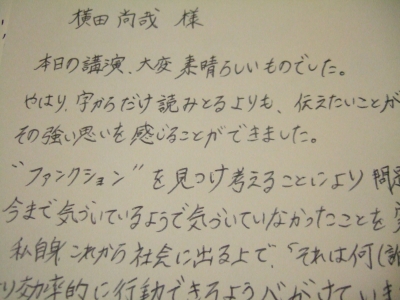 横田 尚哉 様
本日の講演、大変 素晴らしいものでした。
やはり、字からだけ読みとるよりも、伝えたいことが
その強い思いを感じることができました。
"ファンクション" を見つけ考えることにより 問
今まで気づいているようで気づいていなかったことを
私自身これから社会に出る上で、「それは何(誰
効率的に行動できるよう心がけていき